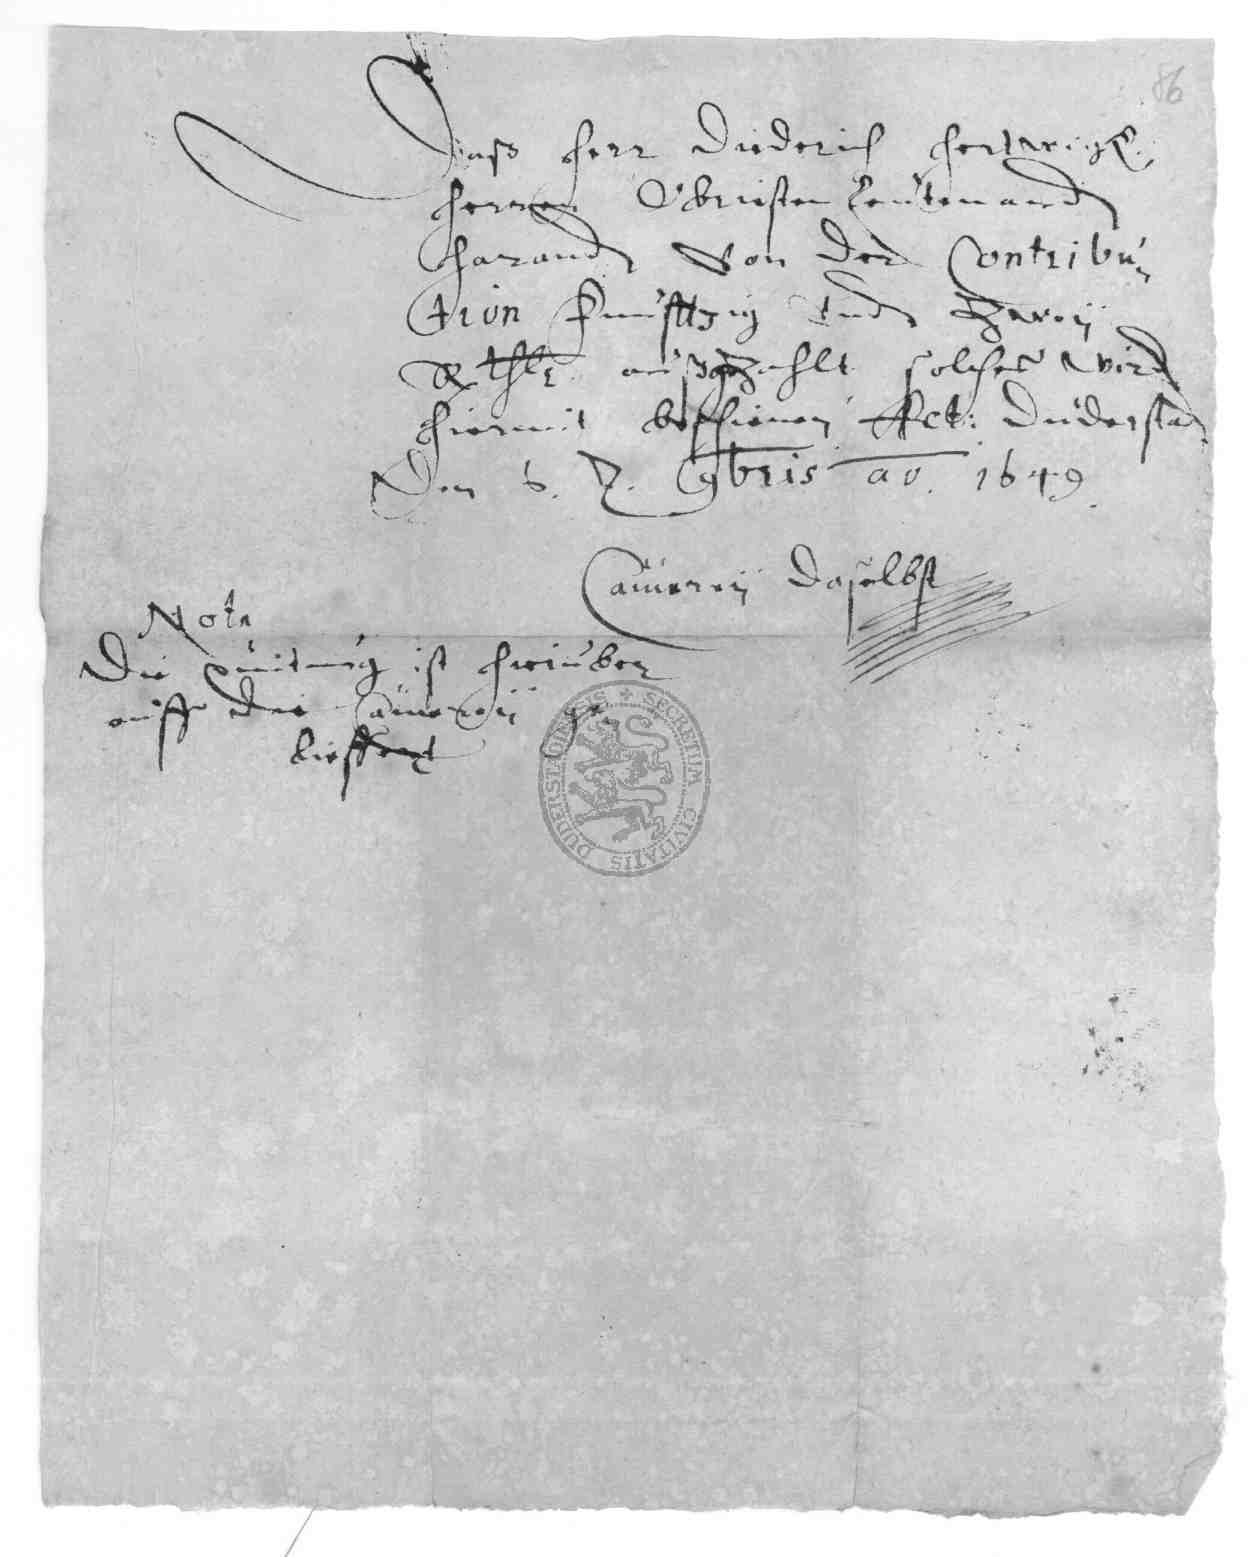 86
Daß Herr Diederich Hertwigk
Herren Obristen Leutenandt
Harandt von der Contribu-
tion Funfftzig undt Zweÿ
Rthlr außgezahlt solches wirdt
hiermit beschienen Act: Duderstadt
Den 9bris ao. 1649
Camereÿ Daselbst
Nota
Die quitung ist hieruber
auff die Camereÿ ge
lieffert
SECRETUM CIVITATIS DUDERSTAGIENSIS